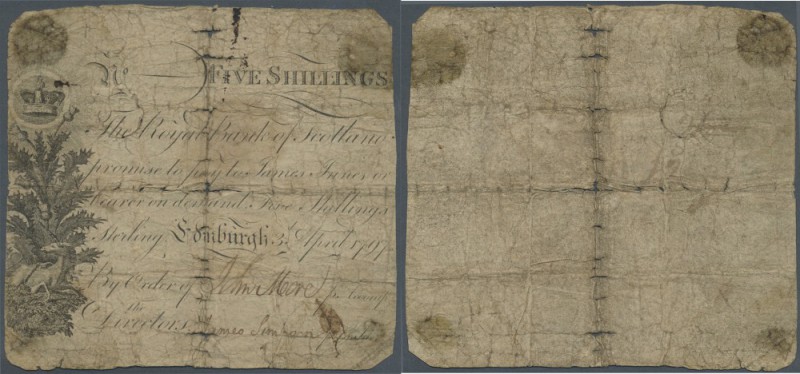 No FIVE SHILLINGS
The Royal Bank of Scotland
promise to pay to James Innes or
bearer on demand Five Shillings
Sterling. Edinburgh 3d April 1797
By Order of John More
the
Directors James Simpson